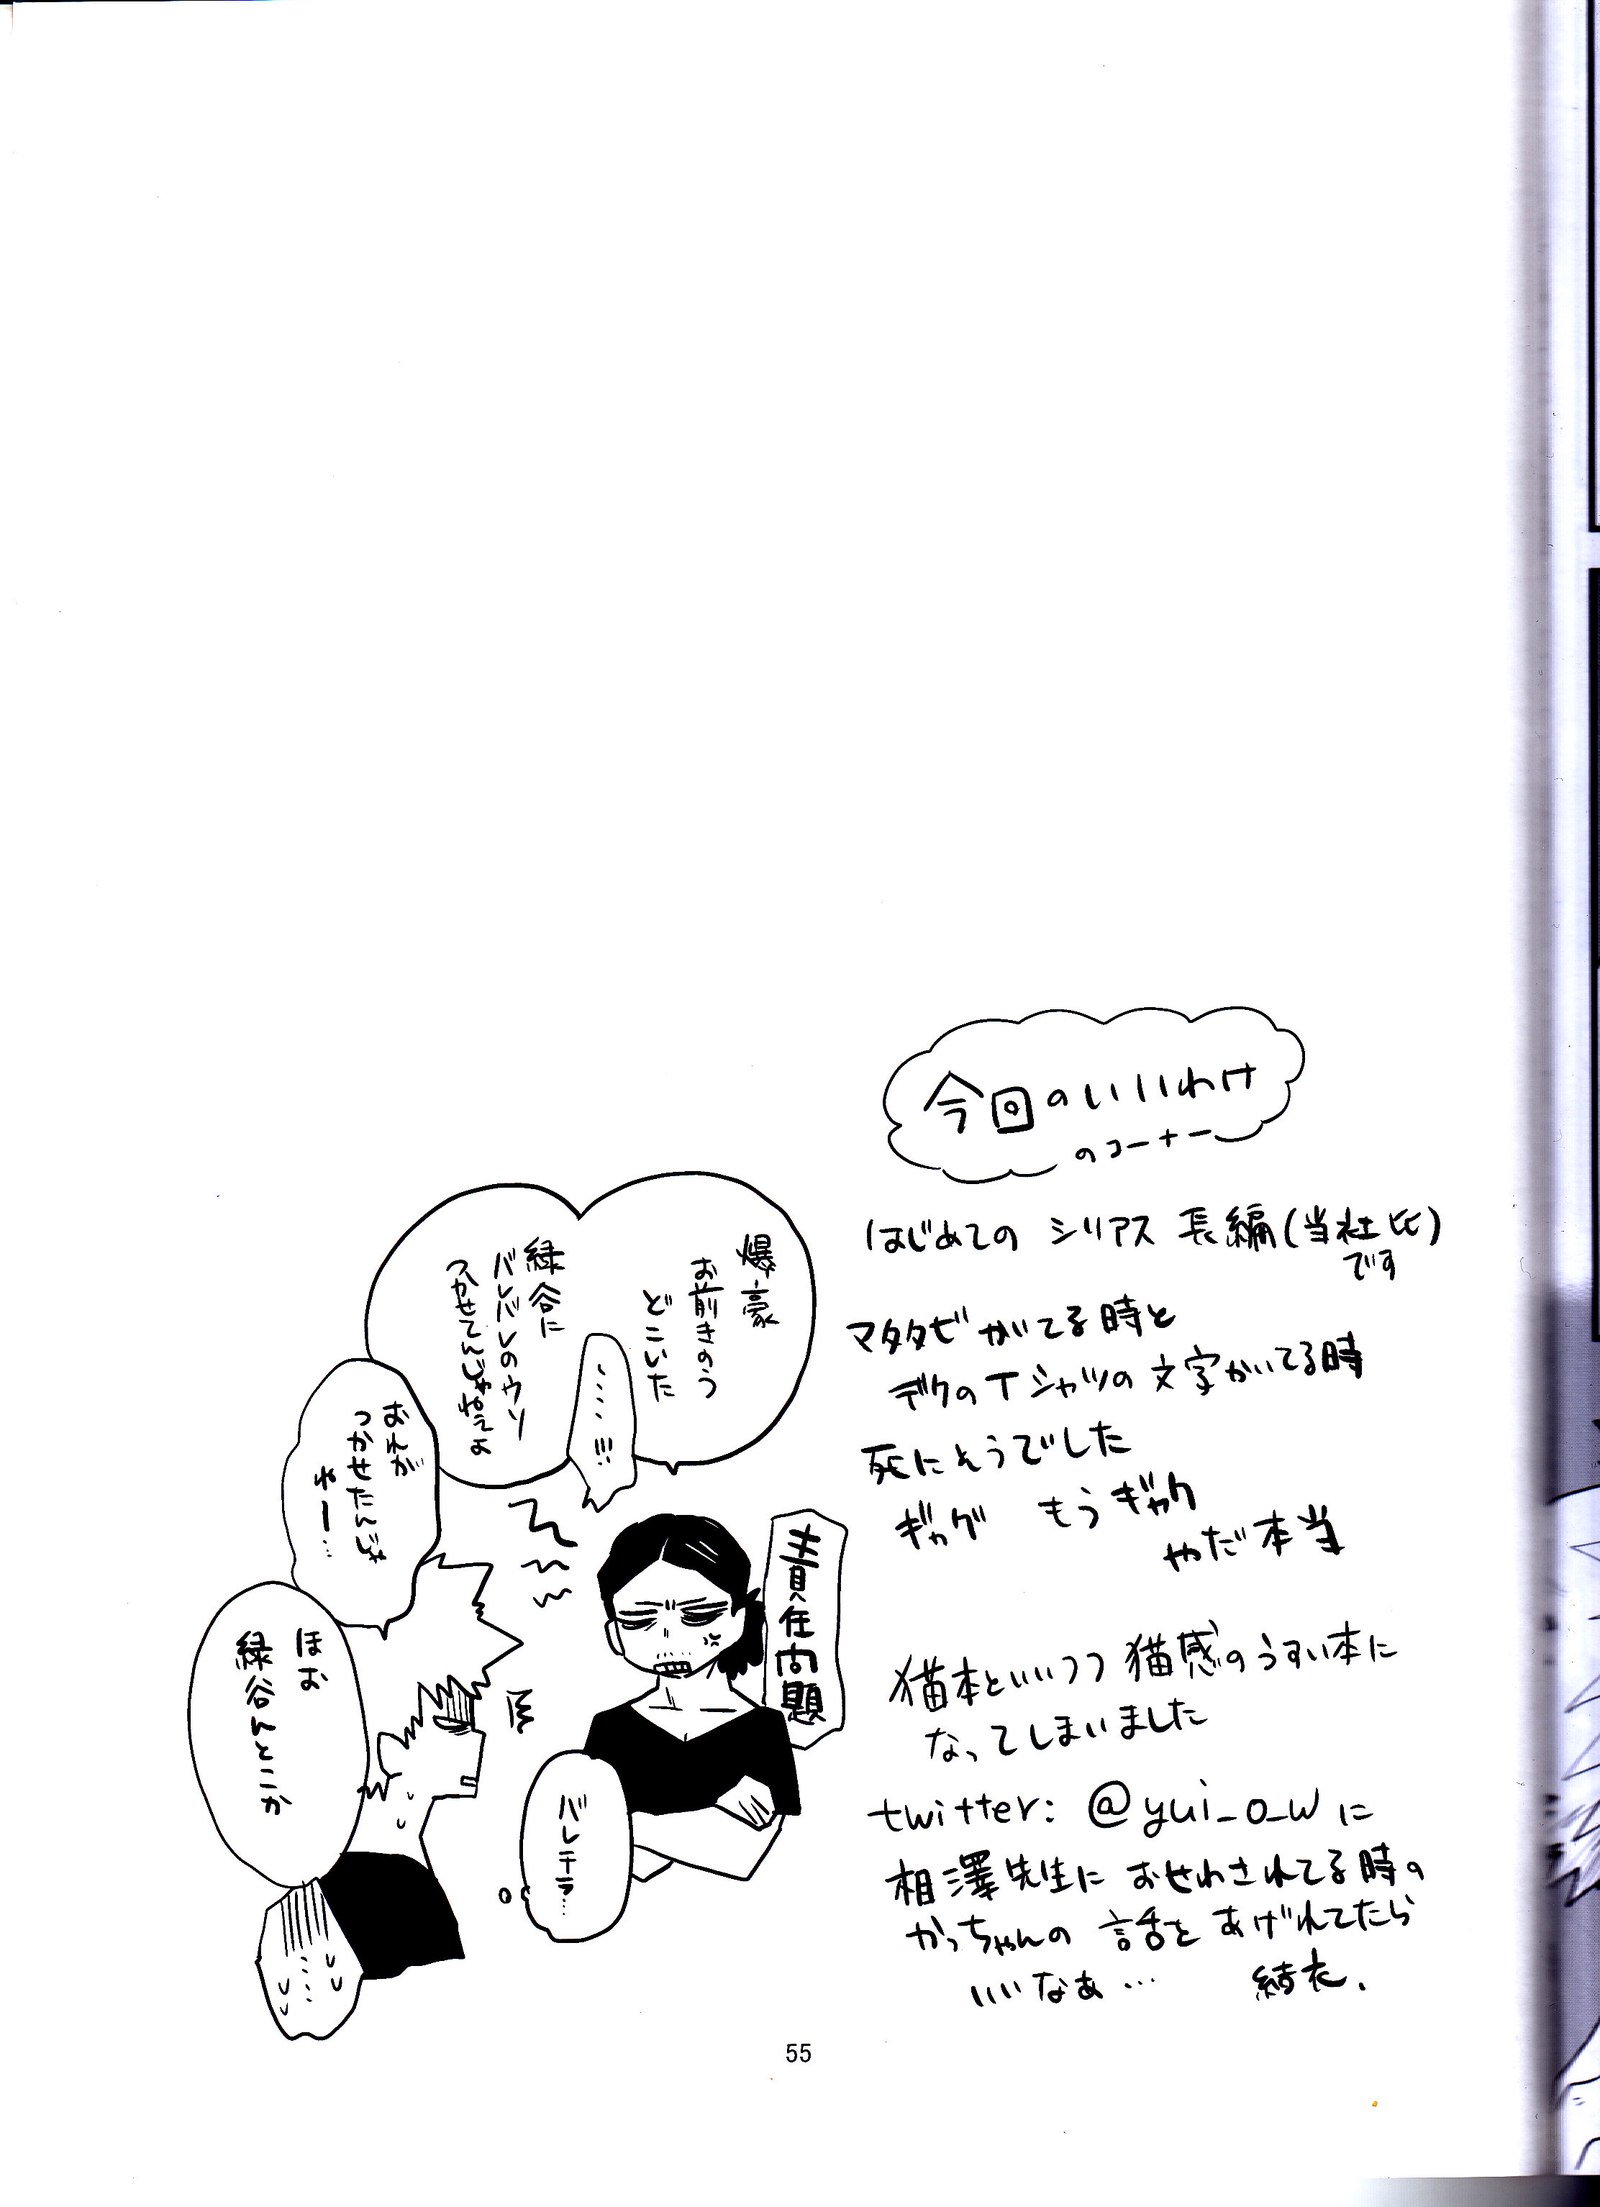 今回のいいわけ
のコーナー
はじめての シリアス 長編(当社比)
です
マタタビかいてる時と
デクのTシャツの文字かいてる時
死にそうでした
ギャグ もうギャグ
やだ本当
猫本といいつつ猫感のうすい本に
なってしまいました
twitter: @yui_o_wに
相澤先生におせわされてる時の
かっちゃんの 話を あげれてたら
いいなぁ… 結衣.
爆豪
お前きのう
どこいた
緑谷に
バレバレのウソ
つかせてんじゃねえよ
……!!!
おれが
つかせたんじゃ
ねー…
ほお
緑谷んとこか
……
責任問題
バレテラ…
55